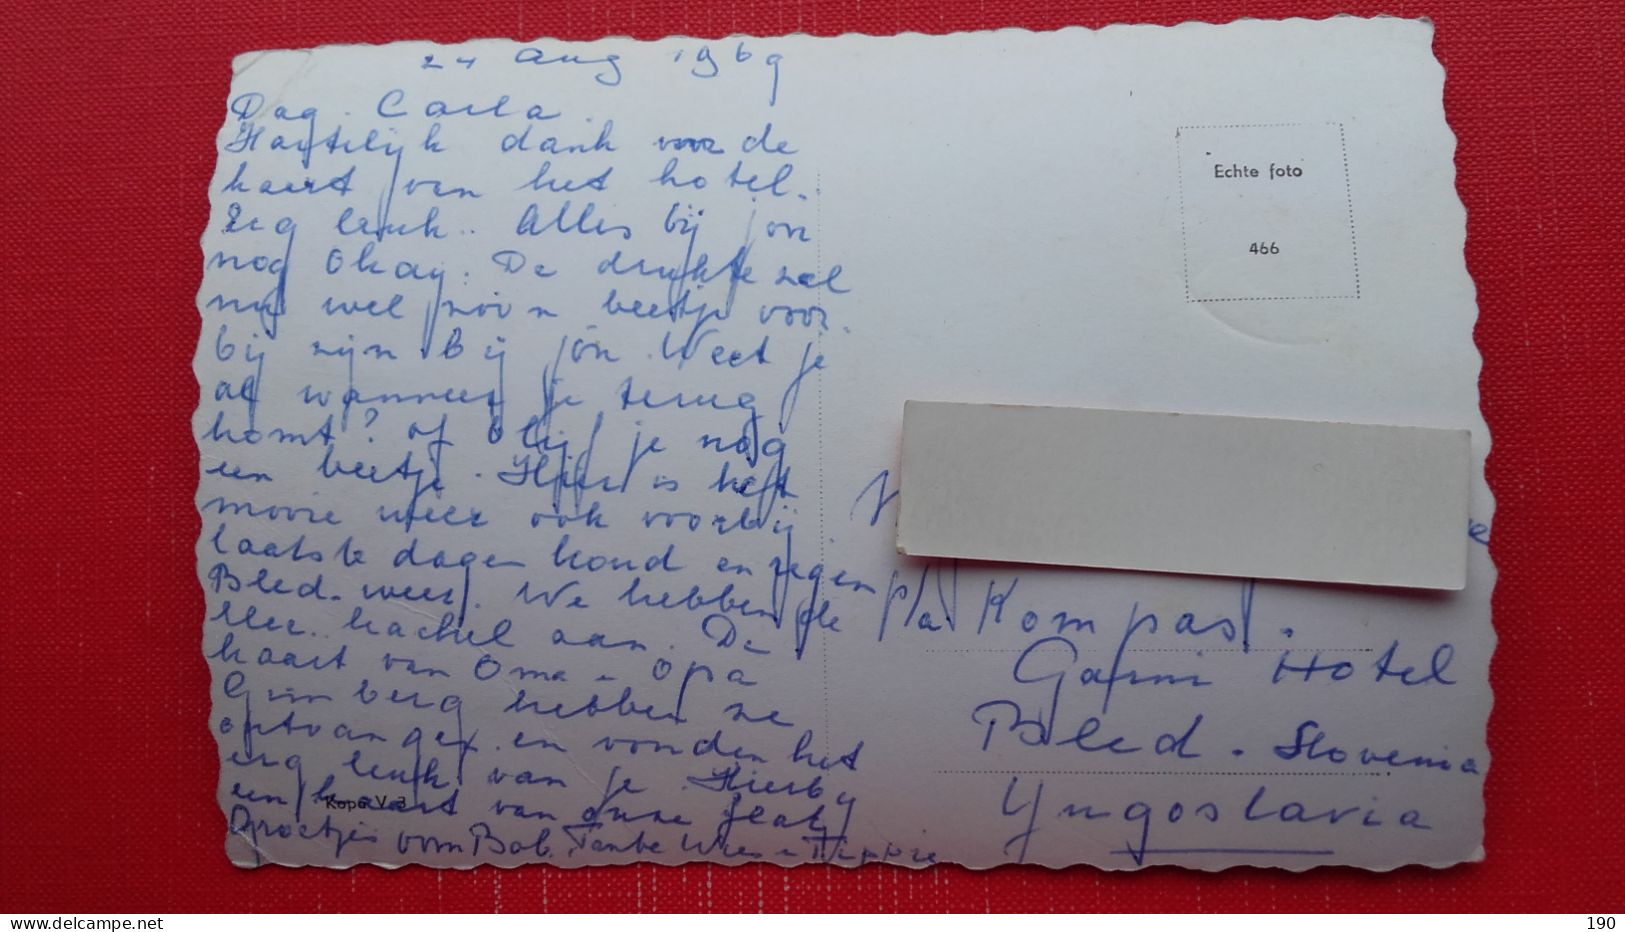 24 aug 1969
Dag. Carla.
Hartelijk dank voor de
kaart van het hotel.
Erg leuk. Alles bij jou
nog Okay. De drukte zal
nu wel zoo'n beetje voor-
bij zijn bij jou. Weet je
al wanneer je terug
komt? of blijf je nog
een beetje. Hier is het
mooie weer ook voorbij
laatste dagen koud en regen
Bled-weer. We hebben de
kachel aan. De
kaart van Oma en Opa
hebben ze
ontvangen en vonden het
erg leuk van je. Hierbij
een kaart van onze flat
Groetjes van Bob. Tante Wies
Kopo V. 3
Echte foto
466
p/a Kompas.
Garni Hotel
Bled. Slovenia
Yugoslavia
delcampe.net
190